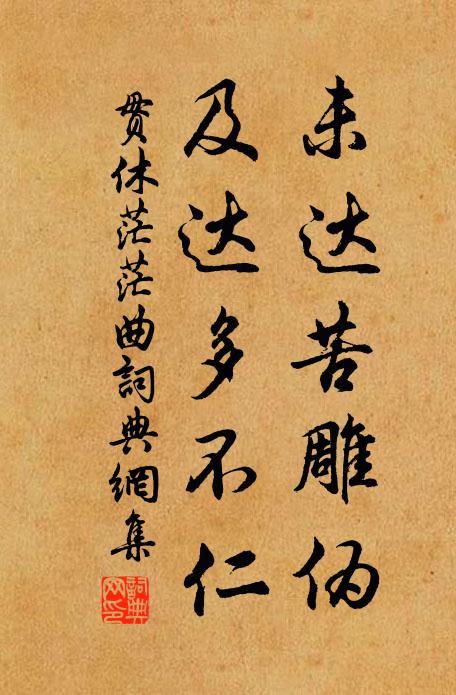 未达苦雕伪
及达多不仁
贯休茫茫曲詞典網集
詞典网印